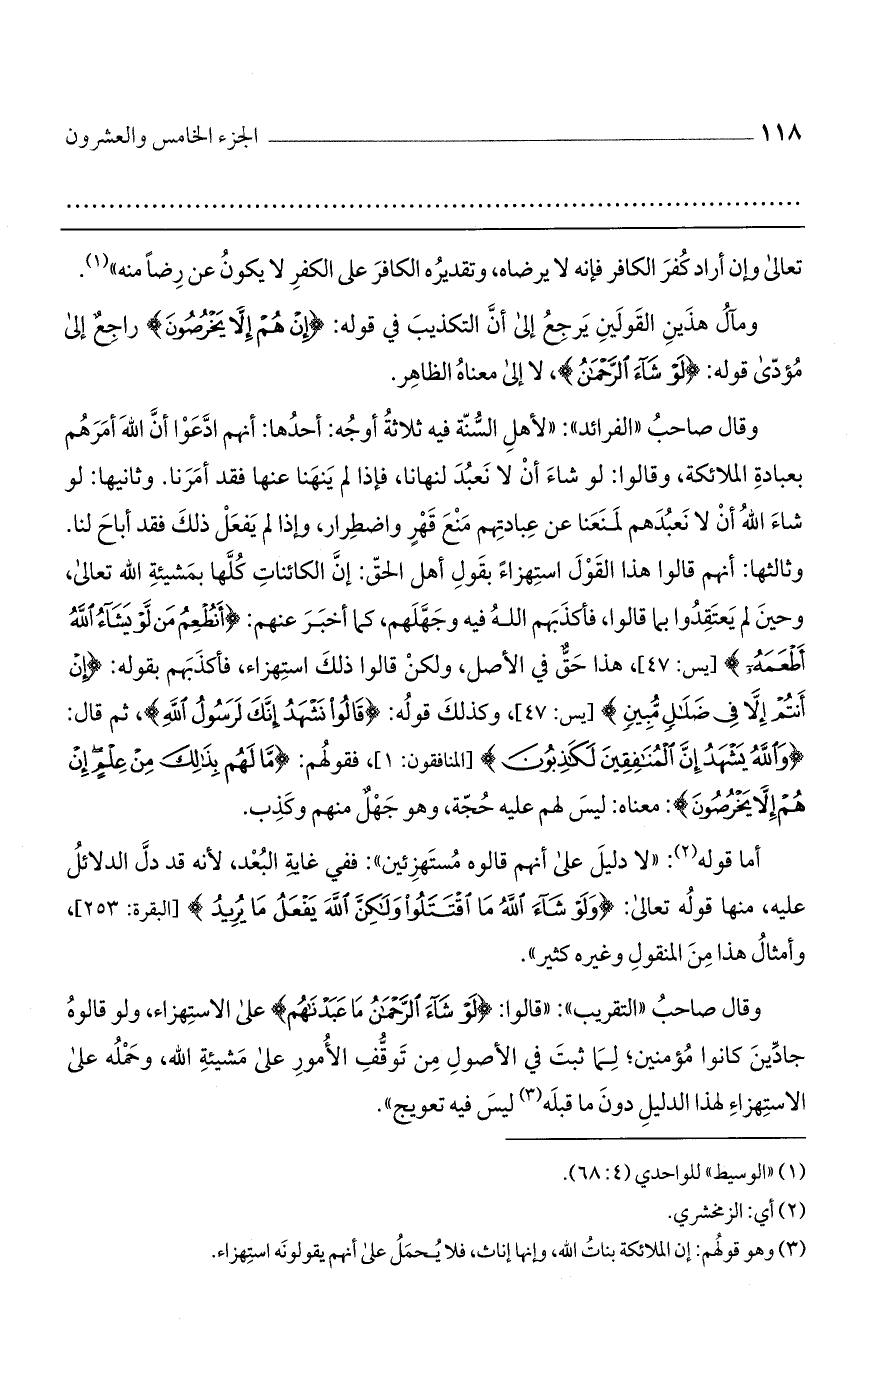 ١١٨ الجزء الخامس والعشرون
................................................................................
تعالىٰ وإن أراد كُفرَ الكافر فإنه لا يرضاه، وتقديرُه الكافرَ على الكفرِ لا يكونُ عن رِضاً منه»(١).
ومآلُ هذَينِ القَولَينِ يَرجِعُ إلىٰ أنَّ التكذيبَ في قوله: ﴿إِنْ هُمْ إِلَّا يَخْرُصُونَ﴾ راجِعٌ إلىٰ
مُؤدّىٰ قوله: ﴿لَوْ شَآءَ ٱلرَّحْمَٰنُ﴾، لا إلىٰ معناهُ الظاهِر.
وقال صاحبُ «الفرائد»: «لأهلِ السُّنّة فيه ثلاثةُ أوجُه: أحدُها: أنهم ادَّعَوْا أنَّ اللهَ أمَرَهُم
بعبادةِ الملائكة، وقالوا: لو شاءَ أنْ لا نَعبُدَ لنهانا، فإذا لم يَنهَنا عنها فقد أمَرَنا. وثانيها: لو
شاءَ اللهُ أنْ لا نَعبُدَهم لَمنَعَنا عن عِبادتِهم مَنْعَ قَهْرٍ واضطِرار، وإذا لم يَفعَلْ ذلكَ فقد أباحَ لنا.
وثالثها: أنهم قالوا هذا القَوْلَ استِهزاءً بقَولِ أهل الحقّ: إنَّ الكائناتِ كُلَّها بمَشيئةِ الله تعالىٰ،
وحينَ لم يَعتَقِدُوا بما قالوا، فأكذَبَهم اللهُ فيه وجَهَّلَهم، كما أخبَرَ عنهم: ﴿أَنُطْعِمُ مَن لَّوْ يَشَآءُ ٱللَّهُ
أَطْعَمَهُۥٓ﴾ [يس: ٤٧]، هذا حَقٌّ في الأصل، ولكنْ قالوا ذلكَ استِهزاء، فأكذَبَهم بقوله: ﴿إِنْ
أَنتُمْ إِلَّا فِى ضَلَٰلٍ مُّبِينٍ﴾ [يس: ٤٧]، وكذلكَ قولُه: ﴿قَالُوا۟ نَشْهَدُ إِنَّكَ لَرَسُولُ ٱللَّهِ﴾، ثم قال:
﴿وَٱللَّهُ يَشْهَدُ إِنَّ ٱلْمُنَٰفِقِينَ لَكَٰذِبُونَ﴾ [المنافقون: ١]، فقولُهم: ﴿مَّا لَهُم بِذَٰلِكَ مِنْ عِلْمٍ إِنْ
هُمْ إِلَّا يَخْرُصُونَ﴾: معناه: ليسَ لهم عليه حُجّة، وهو جَهْلٌ منهم وكَذِب.
أما قوله(٢): «لا دليلَ علىٰ أنهم قالوه مُستَهزِئين»: ففي غايةِ البُعْد، لأنه قد دلَّ الدلائلُ
عليه، منها قولُه تعالىٰ: ﴿وَلَوْ شَآءَ ٱللَّهُ مَا ٱقْتَتَلُوا۟ وَلَٰكِنَّ ٱللَّهَ يَفْعَلُ مَا يُرِيدُ﴾ [البقرة: ٢٥٣]،
وأمثالُ هذا مِنَ المنقولِ وغيره كثير».
وقال صاحبُ «التقريب»: «قالوا: ﴿لَوْ شَآءَ ٱلرَّحْمَٰنُ مَا عَبَدْنَٰهُم﴾ علىٰ الاستِهزاء، ولو قالوهُ
جادِّينَ كانوا مُؤمنين؛ لِـمَا ثبتَ في الأصولِ مِن تَوقُّفِ الأُمورِ علىٰ مَشيئةِ الله، وحَمْلُه علىٰ
الاستِهزاءِ لهذا الدليلِ دونَ ما قبلَه(٣) ليسَ فيه تعويج».
(١) «الوسيط» للواحدي (٤: ٦٨).
(٢) أي: الزمخشري.
(٣) وهو قولُهم: إن الملائكة بناتُ الله، وإنها إناث، فلا يُـحمَلُ علىٰ أنهم يقولونَه استِهزاء.